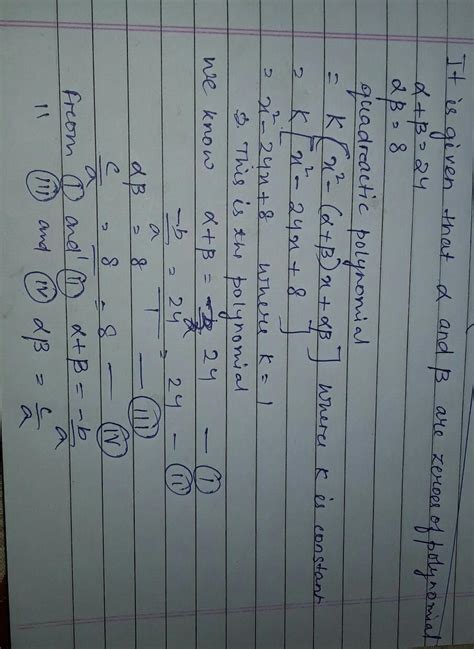 It is given that α and β are zeroes of polynomial
α+β = 24
αβ = 8
quadractic polynomial
= K[x² - (α+β)x + αβ] where K is constant
= K[x² - 24x + 8]
= x² - 24x + 8 where K = 1
This is the polynomial
we know α+β = 24 — (I)
-b/a = 24/1 = 24 — (II)
αβ = 8 — (III)
c/a = 8/1 = 8 — (IV)
From (I) and (II) α+β = -b/a
" (III) and (IV) αβ = c/a